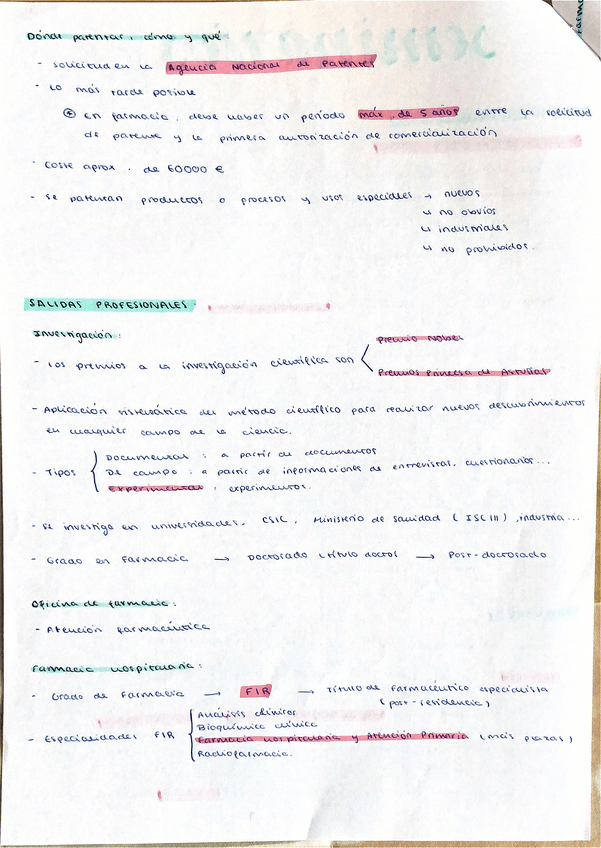 Dónde patentar, cómo y qué
- Solicitud en la Agencia Nacional de Patentes
- Lo más tarde posible
* En farmacia, debe haber un período máx. de 5 años entre la solicitud
de patente y la primera autorización de comercialización
- Coste aprox. de 60000 €
- Se patentan productos o procesos y usos especiales → nuevos
↳ no obvios
↳ industriales
↳ no prohibidos.
SALIDAS PROFESIONALES
Investigación:
- Los premios a la investigación científica son
Premio Nobel
Premios Princesa de Asturias
- Aplicación sistemática del método científico para realizar nuevos descubrimientos
en cualquier campo de la ciencia.
- Tipos
Documental: a partir de documentos
De campo: a partir de informaciones de entrevistas, cuestionarios...
Experimental: experimentos.
- Se investiga en universidades, CSIC, Ministerio de Sanidad (ISCIII), industria...
- Grado en Farmacia → Doctorado (título doctor → Post-doctorado
Oficina de farmacia:
- Atención farmacéutica
Farmacia hospitalaria:
- Grado de Farmacia → FIR → Título de Farmacéutico especialista
(post-residencia)
- Especialidades FIR
Análisis clínicos
Bioquímica clínica
Farmacia hospitalaria y Atención Primaria (más plazas)
Radiofarmacia.